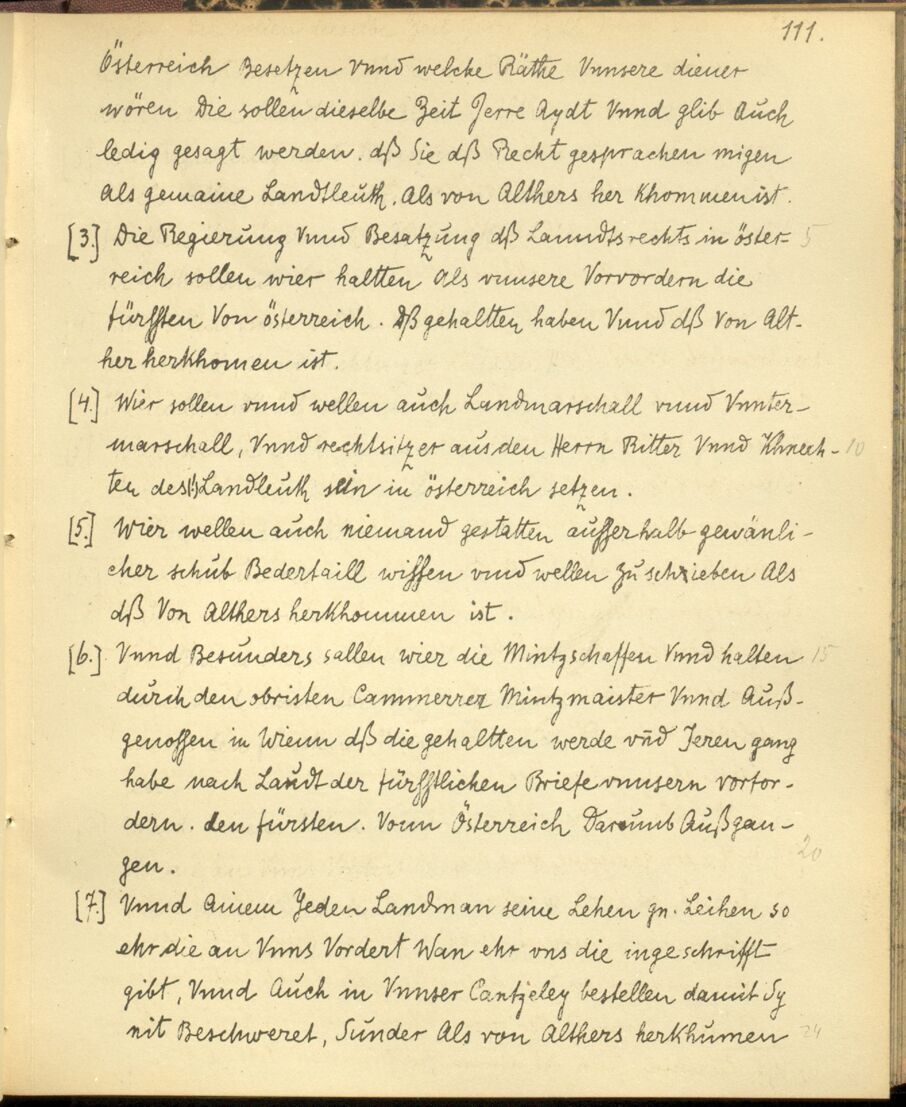 111.
Österreich Besetzen vnnd welche Räthe Vnnsere diener
wören Die sollen dieselbe Zeit Jerre Aydt Vnnd glib Auch
ledig gesagt werden. dß Sie dß Recht gesprachen migen
als gemaine Landtleuth. Als von Althers her Khommen ist.
[3.] Die Regierung Vnnd Besatzung dß Lanndtsrechts in öster- 5
reich sollen wier haltten Als vnnsere Vorvordern die
fürssten Von österreich. Dß gehaltten haben Vnnd dß Von Alt-
her herkhomen ist.
[4.] Wier sollen vnnd wellen auch Landmarschall vnnd Vnnter-
marschall, Vnnd rechtsitzer aus den Herrn Ritter Vnnd Khnech- 10
ten des(!) Landleuth sein in österreich setzen.
[5.] Wier wellen auch niemand gestatten ausser halb gewänli-
cher schub Bedertaill wissen vnnd wellen zu schieben Als
dß Von Althers herkhommen ist.
[6.] Vnnd Besunders sallen wier die Mintzschaffen Vnnd halten 15
durch den obristen Cammerrer Mintzmaister Vnnd Auß-
genossen in Wienn dß die gehaltten werde vnd Jeren gang
habe nach Laudt der fürsstlichen Briefe vnnsern vorfor-
dern. den fürsten. Vonn Österreich Darumb Außgan-
gen. 20
[7.] Vnnd Ainem Jeden Landman seine Lehen gn. Leihen so
ehr die an Vnns Vordert Wan ehr vns die ingeschrifft
gibt, Vnnd Auch in Vnnser Cantzeley bestellen damit Sy
nit Beschweret, Sunder Als von Althers herkhumen 24